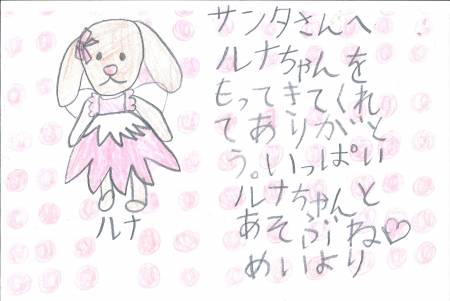 サンタさんへ
ルナちゃんを
もってきてくれ
てありがと
う。いっぱい
ルナちゃんと
あそぶね♡
めいより
ルナ